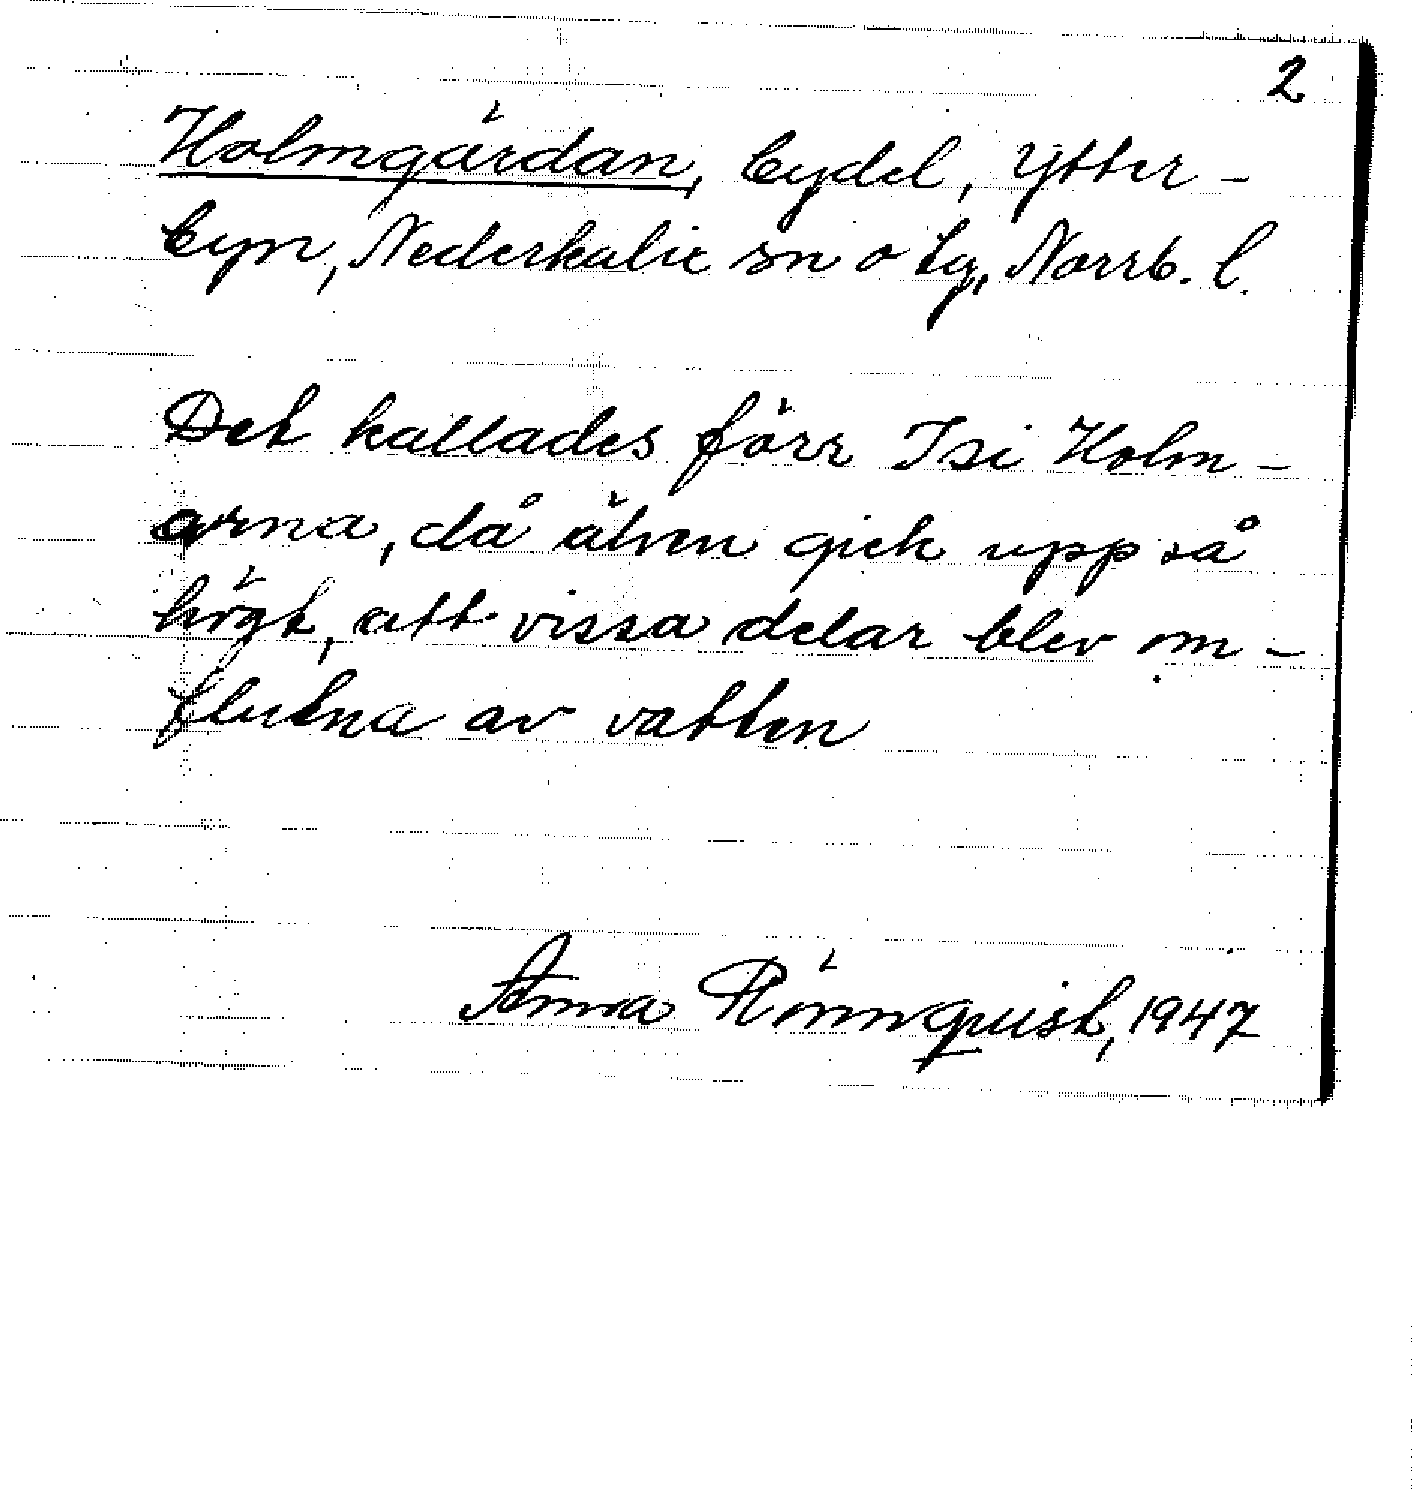 2
Holmgärdan, bydel, Ytter-
byn, Nederkalix sn o tg, Norrb. l.
Det kallades förr Isi Holm-
arna, då älven gick upp så
högt, att vissa delar blev om-
flutna av vatten
Anna Rönnquist, 1947